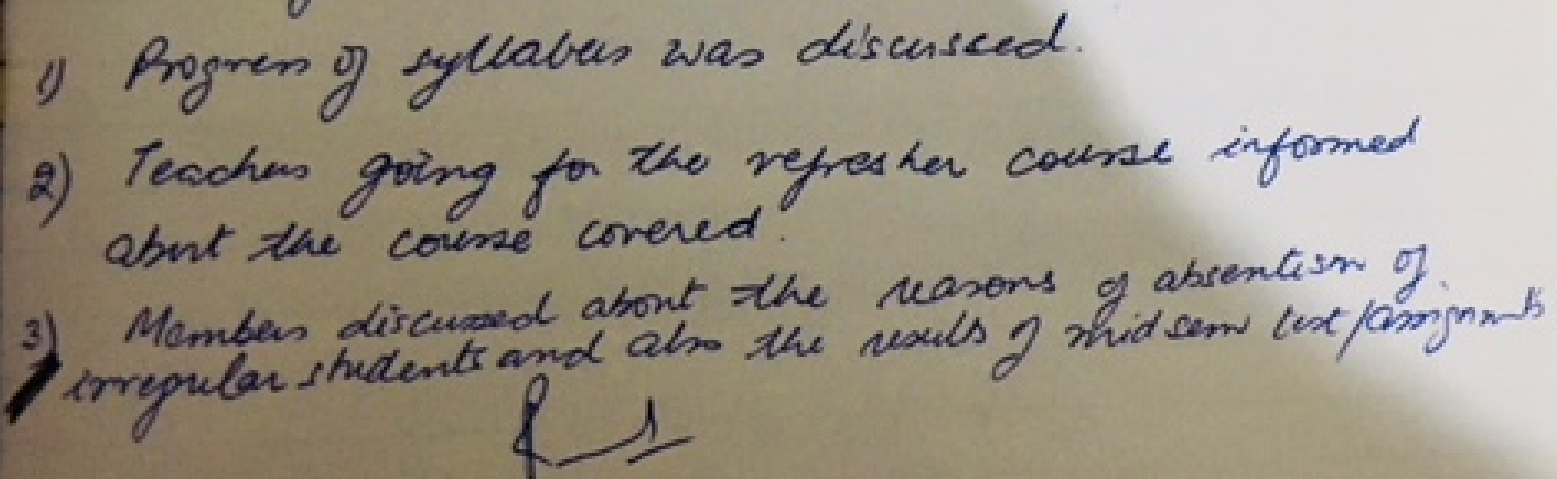 1) Progress of syllabus was discussed.
2) Teachers going for the refresher course informed
about the course covered.
3) Members discussed about the reasons of absentism of
irregular students and also the results of mid sem test/assignments